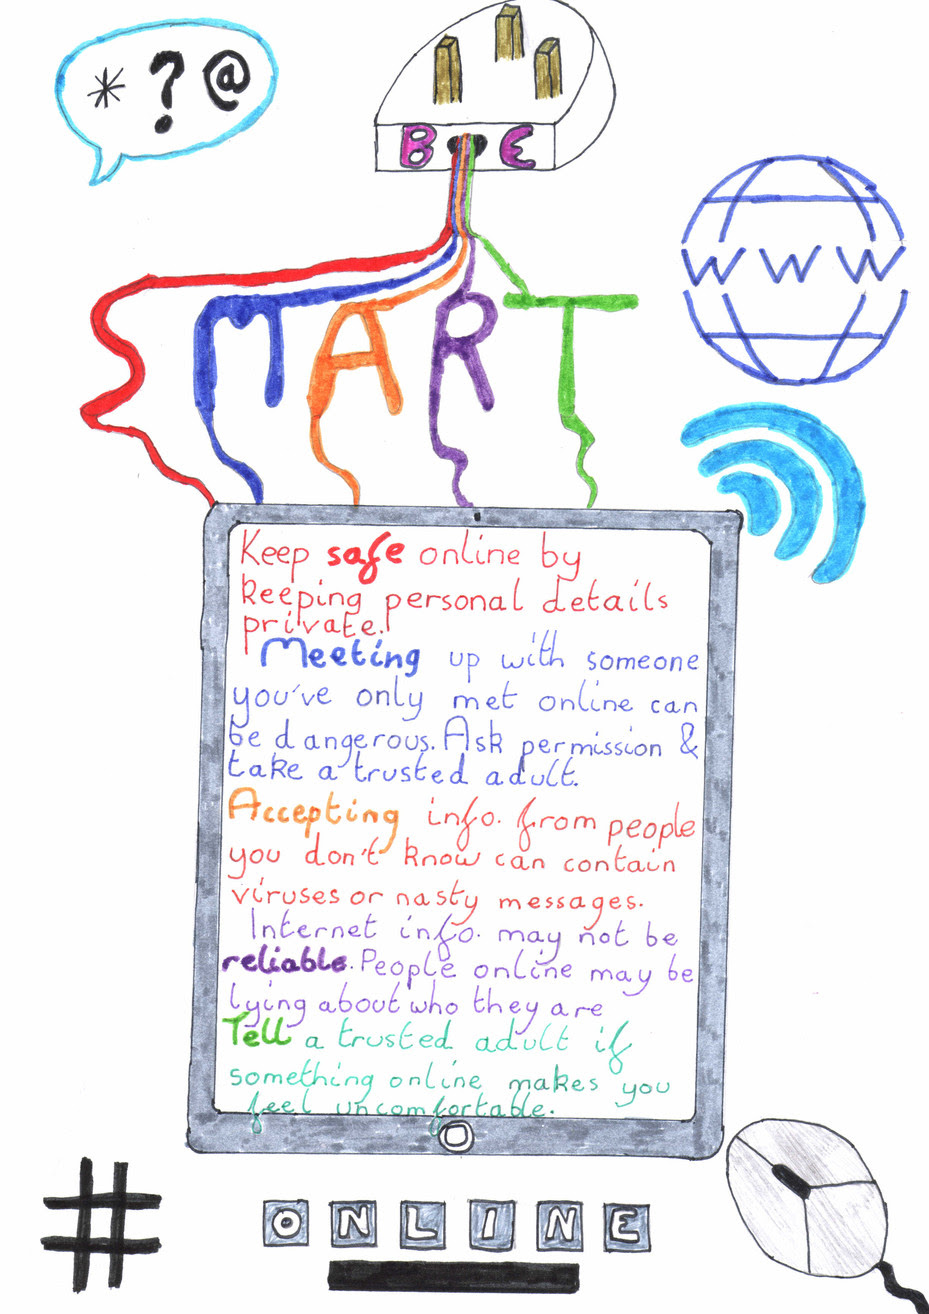 * ? @
B E
WWW
SMART
Keep safe online by
keeping personal details
private.
Meeting up with someone
you've only met online can
be dangerous. Ask permission &
take a trusted adult.
Accepting info. from people
you don't know can contain
viruses or nasty messages.
Internet info. may not be
reliable. People online may be
lying about who they are
Tell a trusted adult if
something online makes you
feel uncomfortable.
#
ONLINE